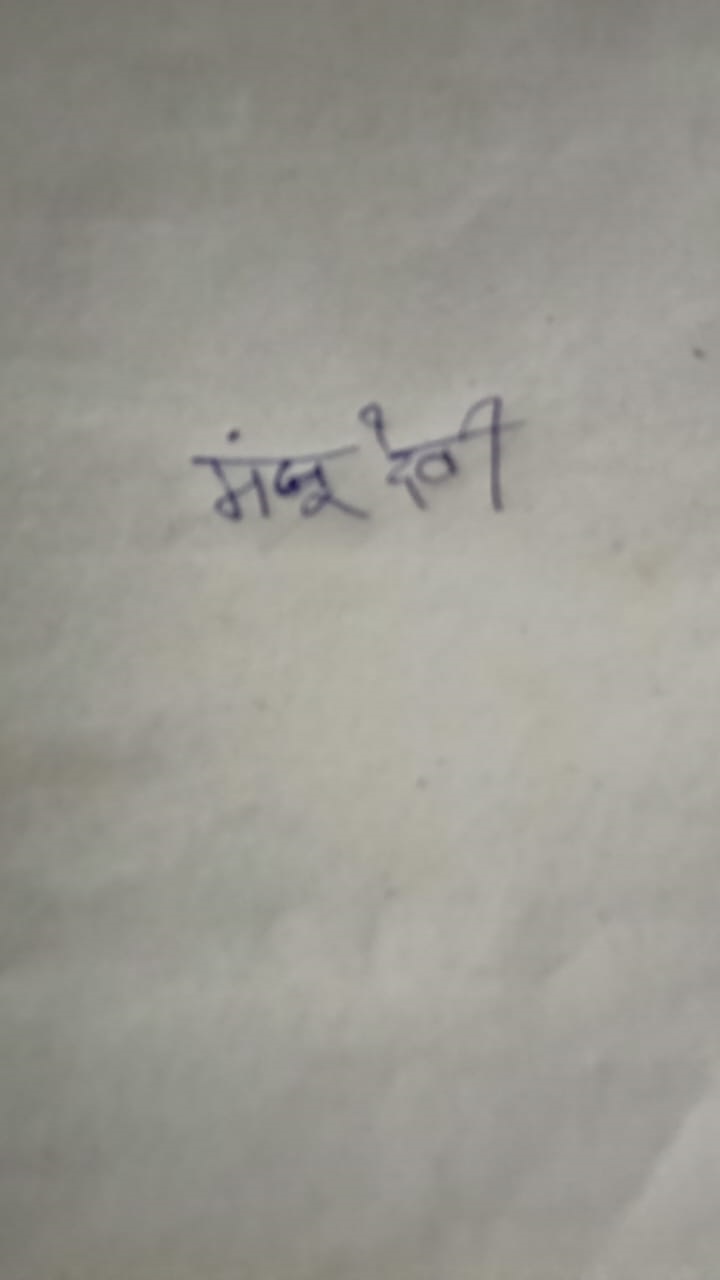 मंजू देवी